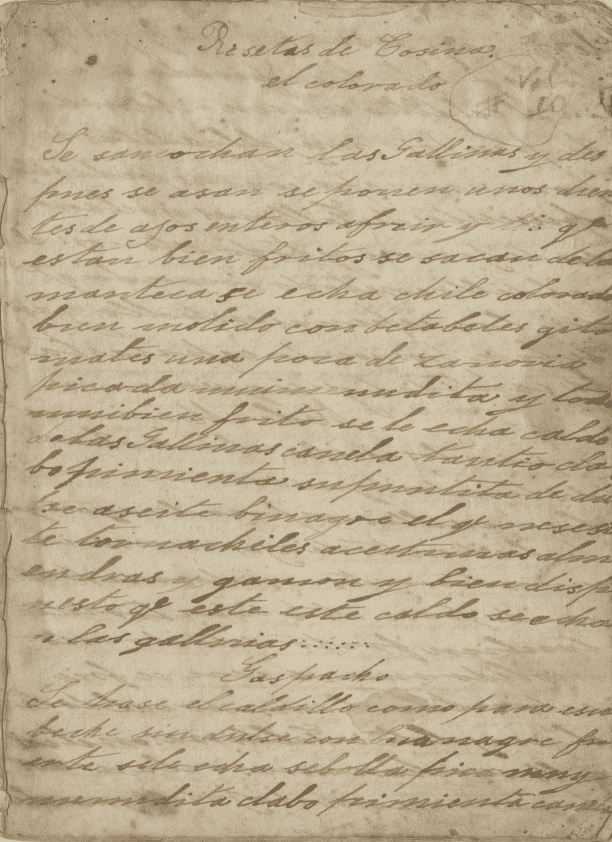 Resetas de Cosina.
el colorado
Vol
# 10
Se sancochan las Gallinas y des
pues se asan se ponen unos dien
tes de ajos enteros afreir y si qe
estan bien fritos se sacan dela
manteca se echa chile colorad
bien molido con betabeles gito
mates una poca de zanoria
picada muim nudita y todo
muibien frito se le echa caldo
de las Gallinas canela tantito cla
bo pimienta supuntita de du
se aseite binagre el qe neses
te tornachiles aceitunas alm
endras y gamon y bien disp
uesto qe este este caldo se echa
n las gallinas
Gaspacho
Se hase el caldillo como para esca
beche sin dulse con binagre fu
erte sele echa sebolla pica muy
menudita clabo pimienta cane